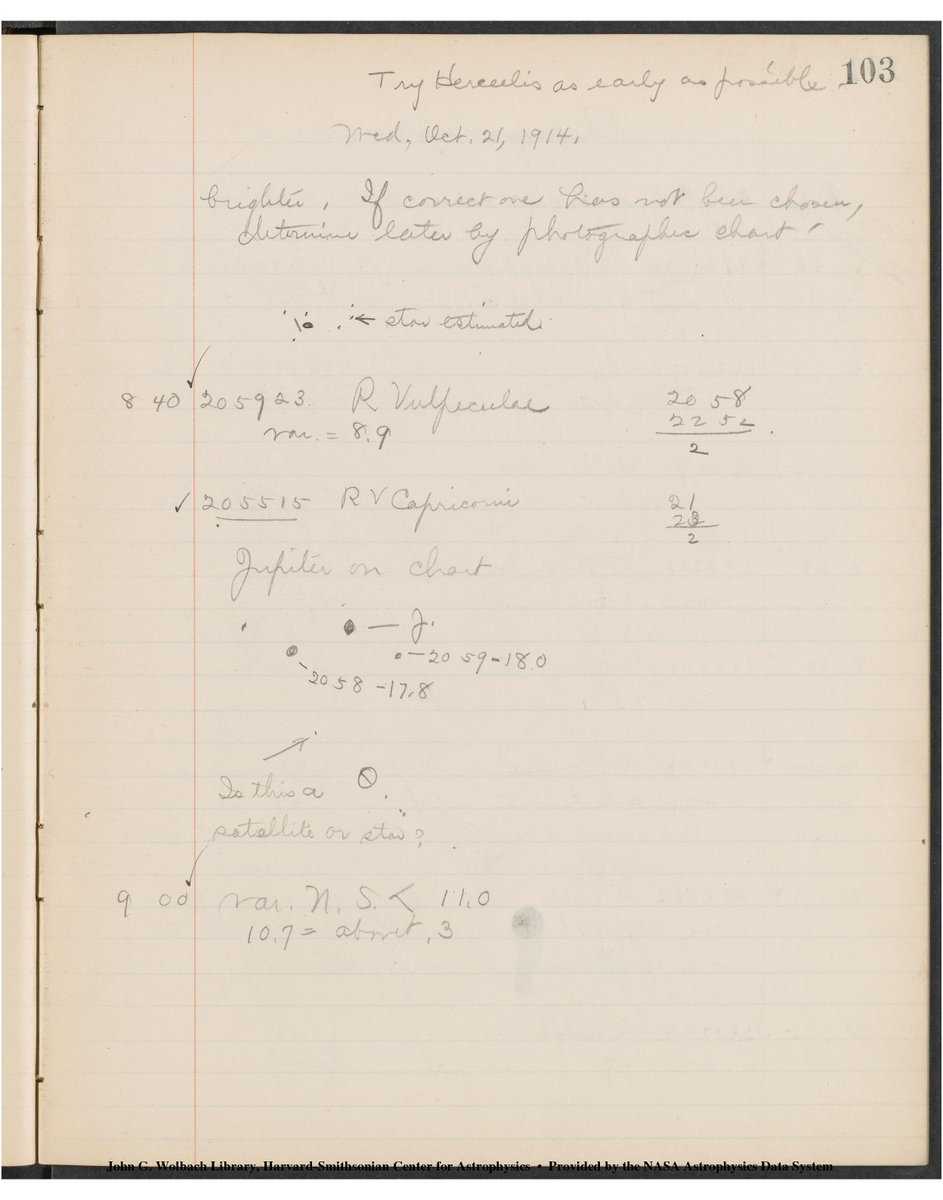 103
Try Herculis as early as possible
Wed, Oct. 21, 1914.
brighter. If correct one has not been chosen,
determine later by photographic chart.
← star estimated.
8 40 205923 R Vulpeculae 20 58
var. = 8.9 22 52
2
205515 RV Capricorni 21
23
2
Jupiter on chart
— J.
— 20 59 - 18 0
20 58 - 17.8
Is this a
satallite or star?
9 00 var. N. S. < 11.0
10.7 = about .3
John G. Wolbach Library, Harvard-Smithsonian Center for Astrophysics • Provided by the NASA Astrophysics Data System